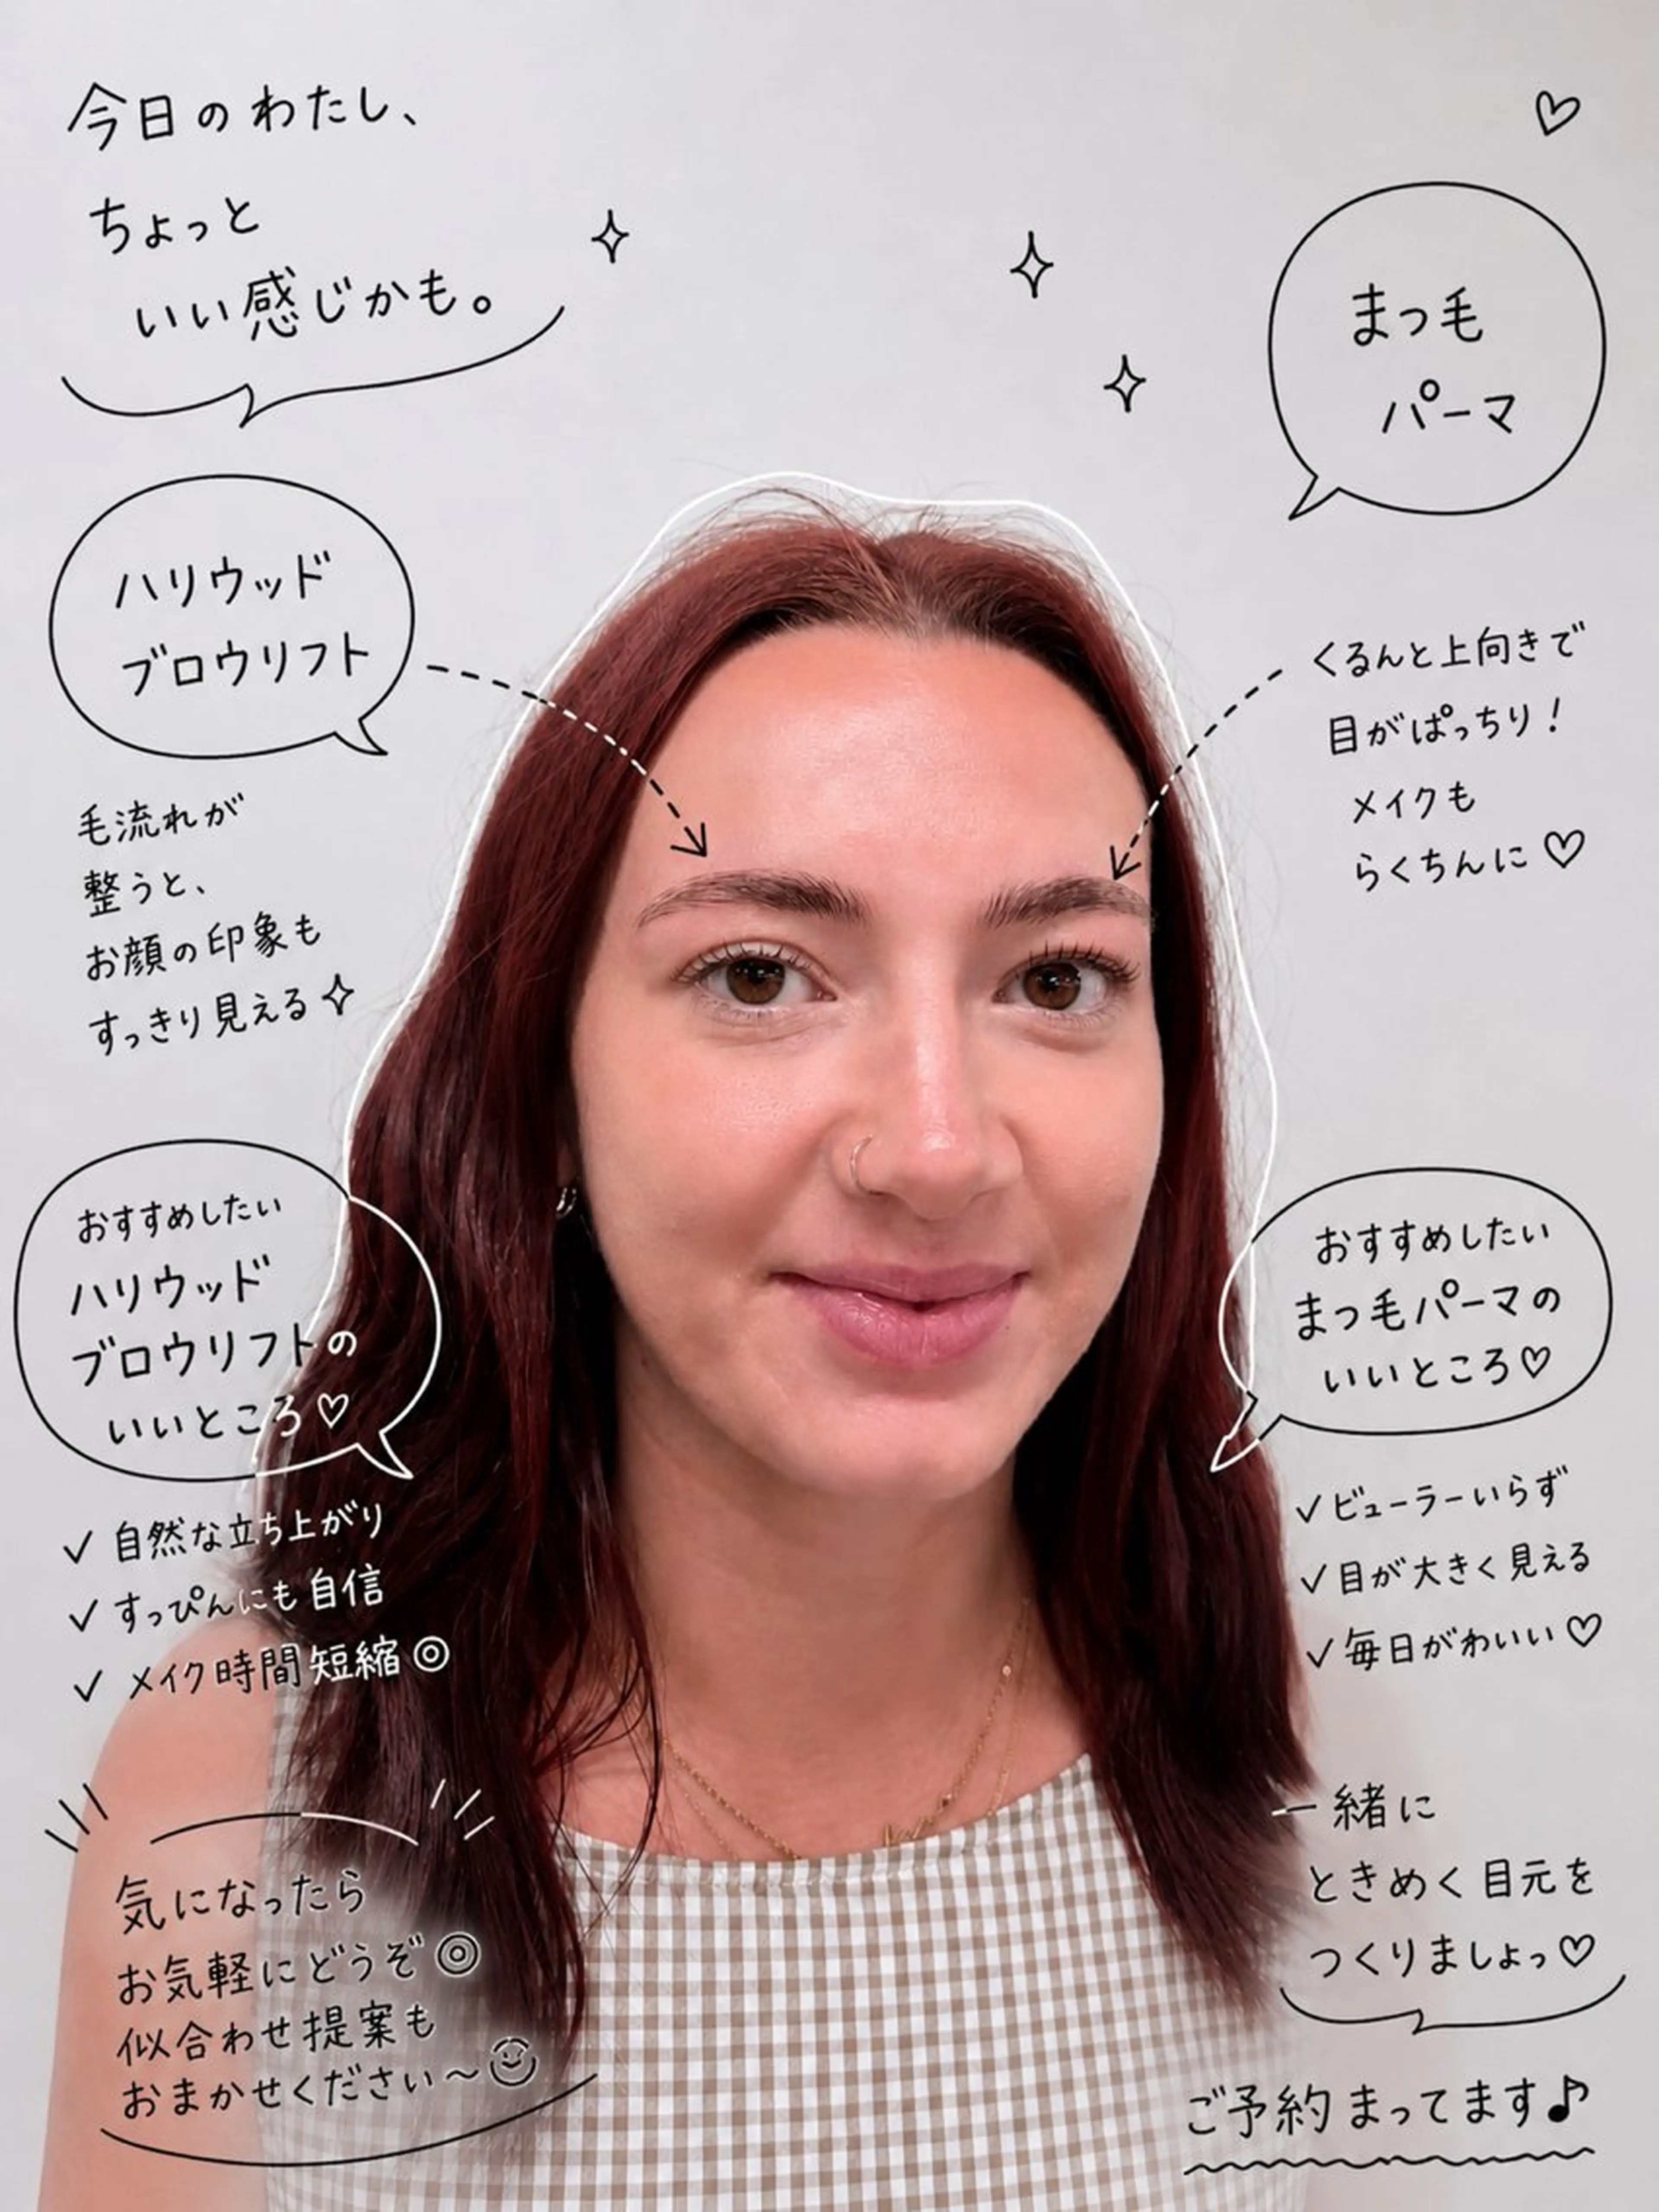 今日のわたし、
ちょっと
いい感じかも。
まつ毛
パーマ
ハリウッド
ブロウリフト
毛流れが
整うと、
お顔の印象も
すっきり見える✧
くるんと上向きで
目がぱっちり!
メイクも
らくちんに♡
おすすめしたい
ハリウッド
ブロウリフトの
いいところ♡
✓ 自然な立ち上がり
✓ すっぴんにも自信
✓ メイク時間短縮◎
おすすめしたい
まつ毛パーマの
いいところ♡
✓ ビューラーいらず
✓ 目が大きく見える
✓ 毎日がわいい♡
気になったら
お気軽にどうぞ◎
似合わせ提案も
おまかせください〜☺
一緒に
ときめく目元を
つくりましょっ♡
ご予約まってます♪